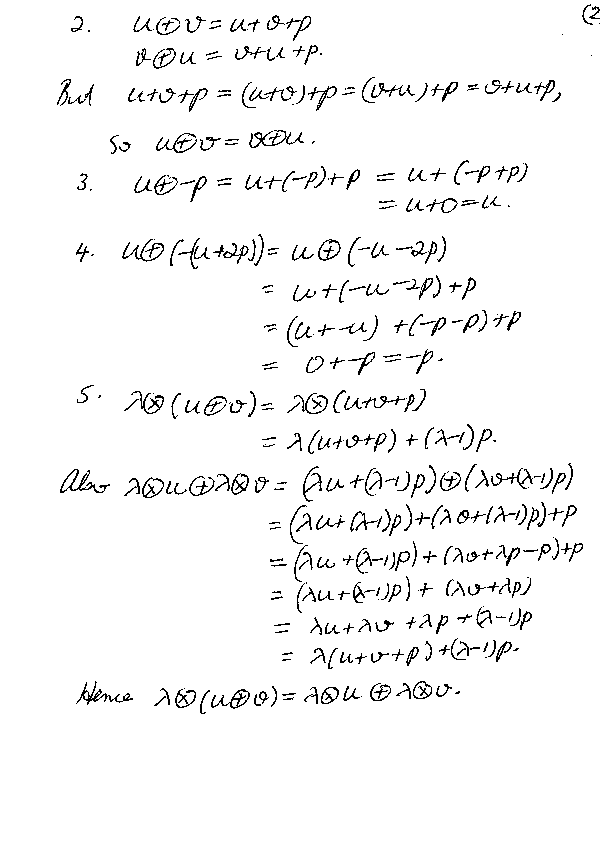 (2
2. u⊕v = u+v+p
v⊕u = v+u+p.
But u+v+p = (u+v)+p = (v+u)+p = v+u+p,
So u⊕v = v⊕u.
3. u⊕-p = u+(-p)+p = u+(-p+p)
= u+0 = u.
4. u⊕(-(u+2p)) = u⊕(-u-2p)
= u+(-u-2p)+p
= (u+-u) +(-p-p)+p
= 0+-p = -p.
5. λ⊗(u⊕v) = λ⊗(u+v+p)
= λ(u+v+p)+(λ-1)p.
Also λ⊗u⊕λ⊗v = (λu+(λ-1)p)⊕(λv+(λ-1)p)
= (λu+(λ-1)p)+(λv+(λ-1)p)+p
= (λu+(λ-1)p)+(λv+λp-p)+p
= (λu+(λ-1)p)+(λv+λp)
= λu+λv+λp+(λ-1)p
= λ(u+v+p)+(λ-1)p.
Hence λ⊗(u⊕v) = λ⊗u⊕λ⊗v.